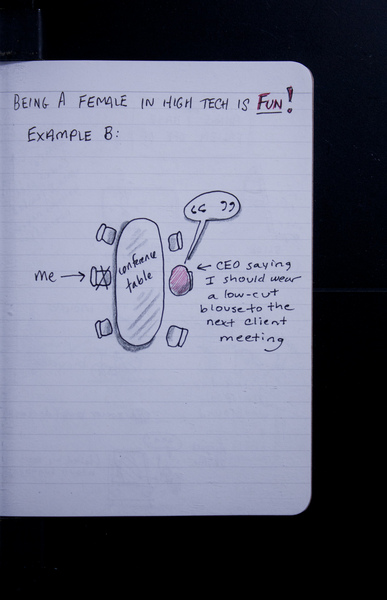 BEING A FEMALE IN HIGH TECH IS FUN!
EXAMPLE B:
“ ”
me →
conference
table
← CEO saying
I should wear
a low-cut
blouse to the
next client
meeting